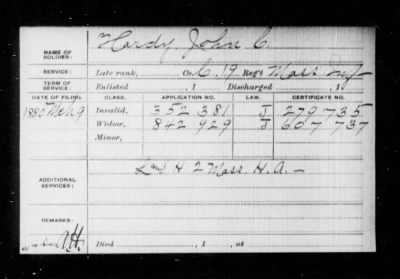 Hardy, John C.
NAME OF SOLDIER:
SERVICE: Late rank, Co. C, 19 Reg't Mass Inf
TERM OF SERVICE: Enlisted , 1 Discharged , 1
DATE OF FILING. CLASS. APPLICATION NO. LAW. CERTIFICATE NO.
1880 Invalid, 352 381 J 279 735
Widow, 842 929 J 607 737
Minor,
ADDITIONAL SERVICES: H 2 Mass. H.A. -
REMARKS:
Died , 1 , at